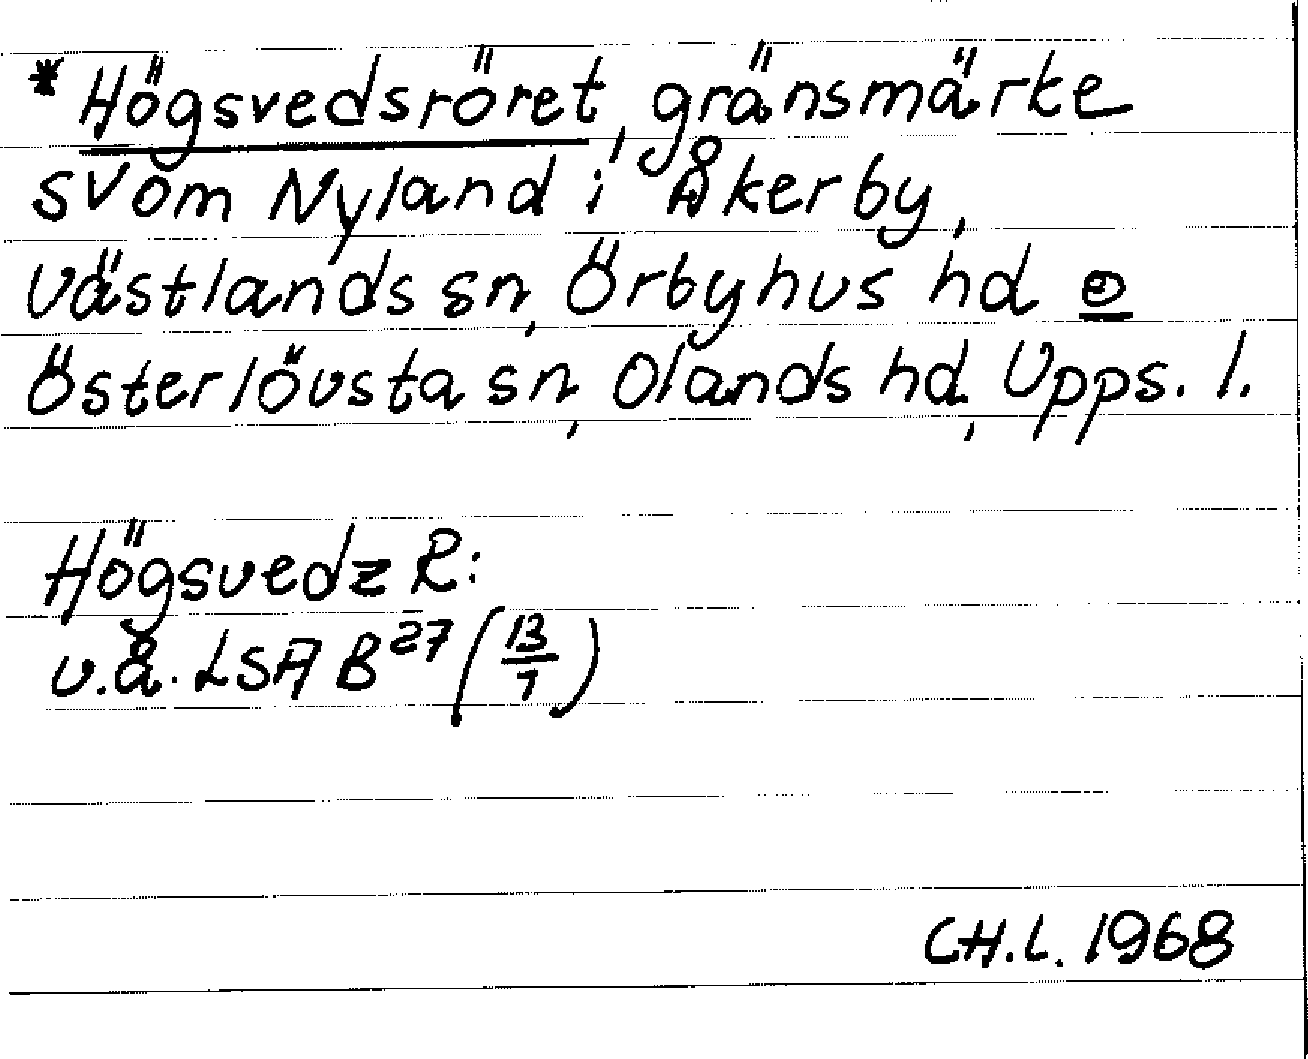 *Högsvedsröret, gränsmärke
SV om Nyland i Åkerby,
Västlands sn, Örbyhus hd o
Österlövsta sn, Olands hd, Upps. l.
Högsvedz R:
u.å. LSA B27 (13/7)
CH.L. 1968